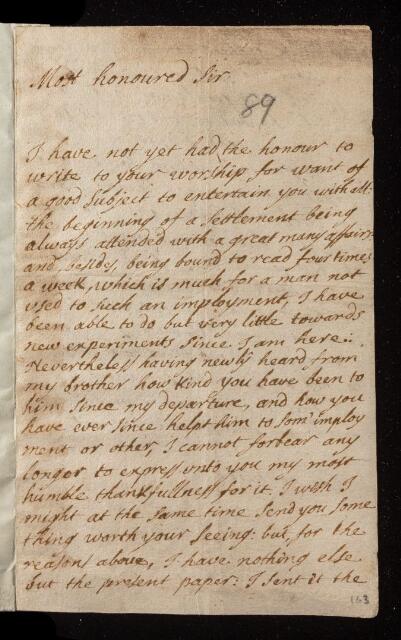 Most honoured Sir
89
I have not yet had the honour to
write to your worship for want of
a good subject to entertain you withall:
the beginning of a settlement being
always attended with a great many affairs:
and, besides, being bound to read four times
a week, which is much for a man not
used to such an imployment, I have
been able to do but very little towards
new experiments since I am here.
Nevertheless having newly heard from
my brother how kind you have been to
him since my departure, and how you
have ever since helpt him to som' imploy
ment or other, I cannot forbear any
longer to express unto you my most
humble thankfullness for it. I wish I
might at the same time send you some
thing worth your seeing: but, for the
reasons above, I have nothing else
but the present paper: I sent it the
163